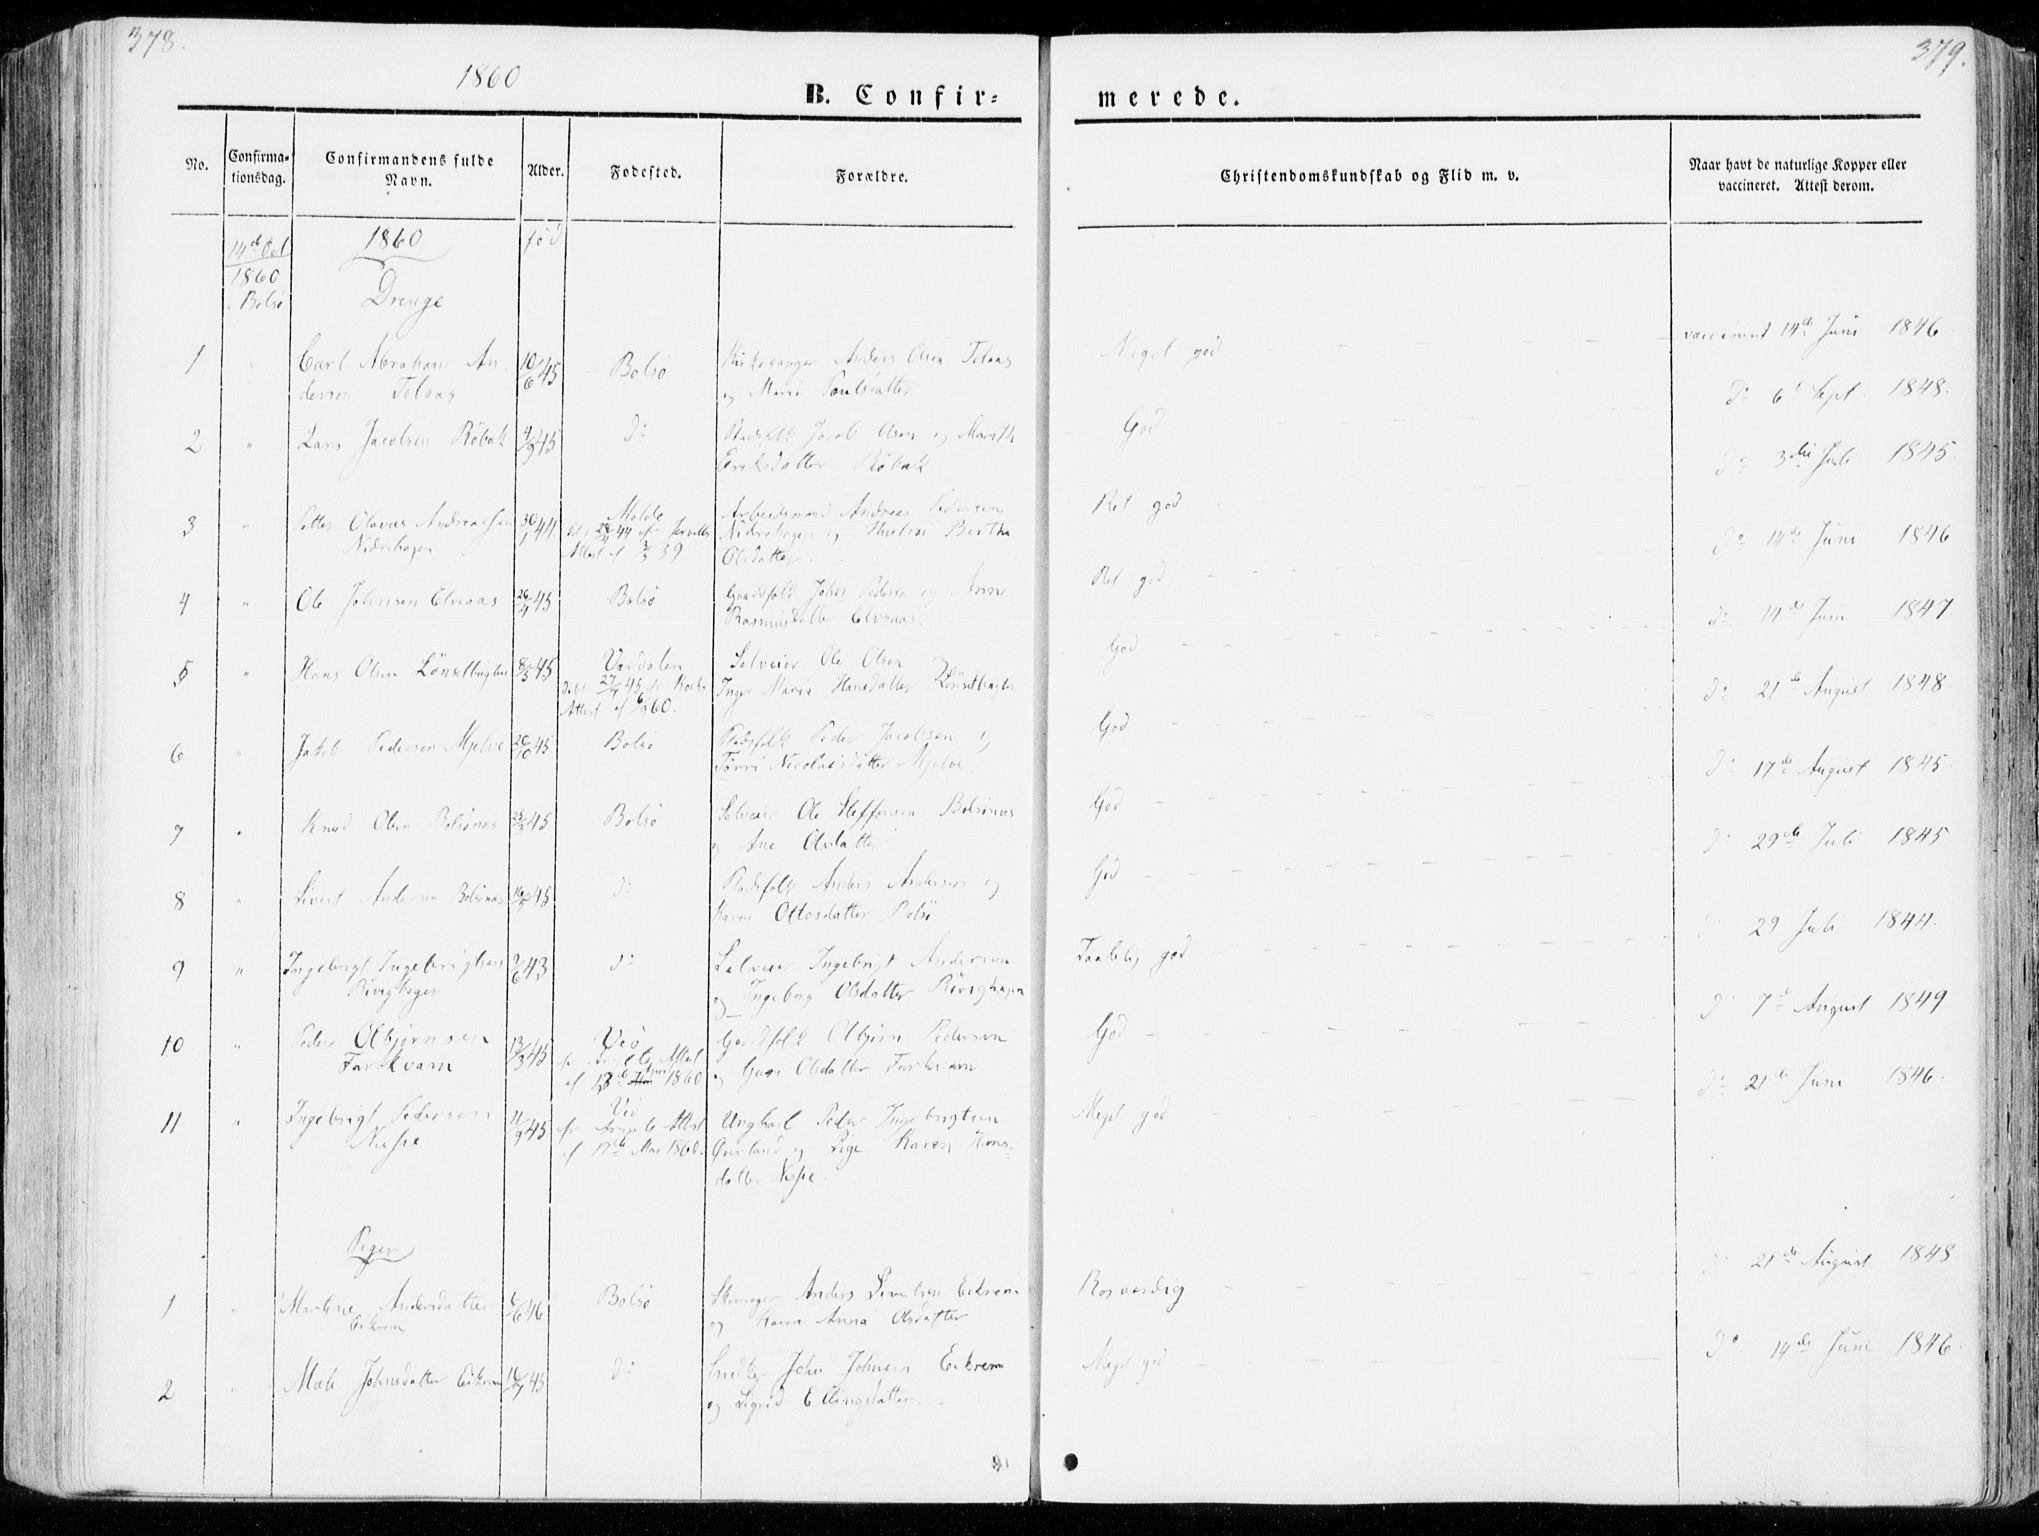 378.
379.
1860
B. Confir-
merede.
No.
Confirma-
tionsdag.
Confirmandens fulde
Navn.
Alder.
Fødested.
Forældre.
Christendomskundskab og Flid m. v.
Naar havt de naturlige Kopper eller
vaccineret. Attest derom.
14de Oct
1860
Bolsø
1860
Drenge
fød
1
Carl Abraham An
dersen Tolaas
10/6 45
Bolsø
Kirkesanger Anders Olsen Tolaas
og Marie Poulsdatter
Meget god
vaccineret 14de Juni 1846
2
Lars Jacobsen Røbak
4/9 45
do
Pladsfolk Jacob Olsen og Marith
Eriksdatter Røbak
God
do 6te Sept. 1848.
3
Petter Olavus Andreassen
Nidrehagen
30/1 44
Molde
Attest af 59
Arbeidsmand Andreas Pedersen
Nidrehagen og Hustru Berthe
Olsdatter
Ret god
do 3die Juli 1845.
4
Ole Johnsen Elvsaas
26/4 45
Bolsø
Gaardfolk John Pedersen og Anne
Rasmusdatter Elvsaas.
Ret god
do 14de Juni 1846
5
Hans Olsen Lønsetbugten
8/5 45
Værdalen
Attest af 60.
Selveier Ole Olsen og
Inger Maria Hansdatter Lønsetbugten
God
do 14de Juni 1847
6
Jakob Pedersen Mjelve
26/10 45
Bolsø
Pladsfolk Peder Jacobsen og
Nicolaisdatter Mjelve
God
do 21de August 1848.
7
Knud Olsen Bolsønæs
25/3 45
Bolsø
Selveier Ole Steffensen Bolsønæs
og Ane Olsdatter
God
do 17de August 1845.
8
Sivert Andersen Bolsønæs
45
do
Pladsfolk Anders Andersen og
Karen Ottosdatter Bolsø
God
do 29de Juli 1845
9
Ingebrigt Ingebrigtsen
43
do
Selveier Ingebrigt Andersen
og Ingeborg Olsdatter
Taalelig god
29 Juli 1844.
10
Peder Olbjørnsen
Farkvam
13/3 45
Veø
af 13de 1860
Gaardfolk Olbjørn Pedersen
og Guri Olsdatter Farkvam
God
do 7de August 1849
11
Ingebrigt Pedersen
11/9 45
Veø
Attest
af 17de Mai 1860.
Ungkarl Peder Ingebrigtsen
Øverland og Pige Karen Hans-
datter
Meget god
do 21de Juni 1846.
Piger
1
Martine Andersdatter
Eikrem
6/6 46
Bolsø
Anders Sivertsen Eikrem
og Karen Anna Olsdatter
Rosværdig
do 21de August 1848
2
Johnsdatter Eikrem
45
do
John Johnsen Eikrem
og Sigrid Ellingsdatter.
Meget god
do 14de Juni 1846.